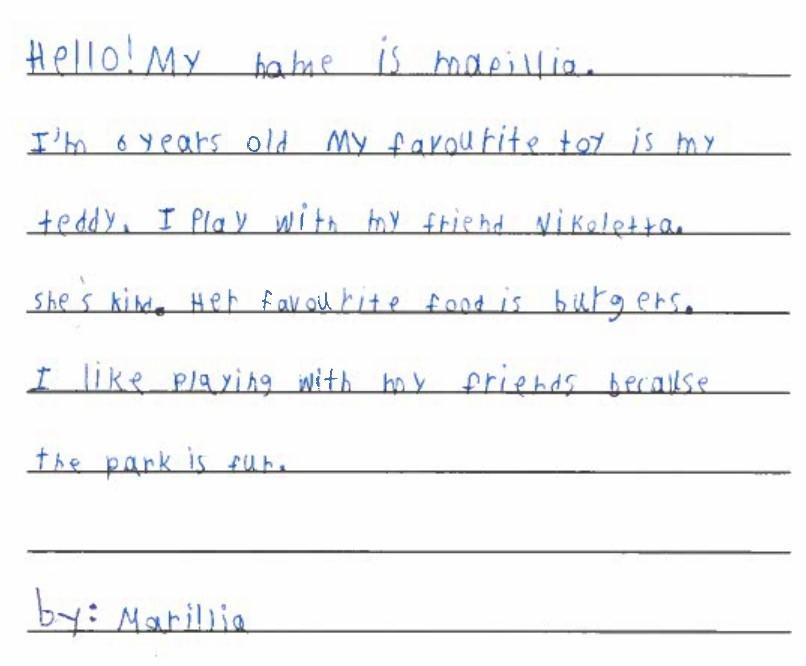 Hello! My name is marillia.
I'm 6 years old My favourite toy is my
teddy. I Play with my friend Nikoletta.
she's kind. Her favourite food is burgers.
I like playing with my friends because
the park is fun.
by: Marillia